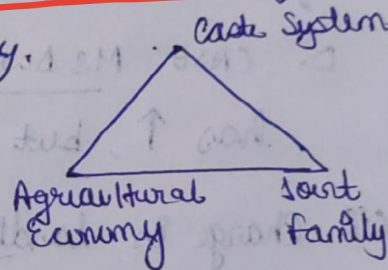 y.
Caste System
Agricultural
Economy
Joint
Family